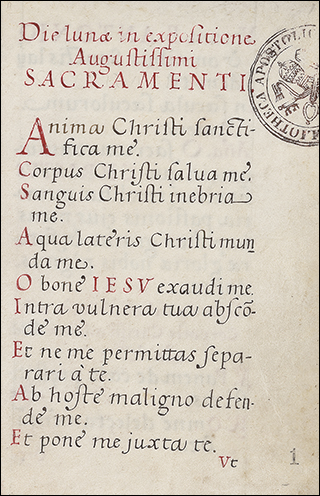 Die lunæ in expositione
Augustissimi
SACRAMENTI
Anima Christi sancti-
fica me.
Corpus Christi salua me.
Sanguis Christi inebria
me.
Aqua lateris Christi mun
da me.
O bone IESV exaudi me.
Intra vulnera tua abscō-
de me.
Et ne me permittas sepa-
rari à te.
Ab hoste maligno defen-
de me.
Et pone me juxta te.
Vt
1